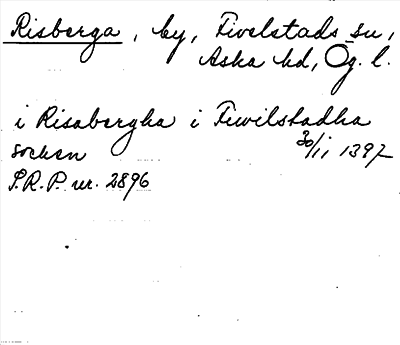 Risberga, by, Fivelstads sn,
Aska hd, Ög. l.
i Risabergha i Fiwilstadha
socken 30/11 1397
S.R.P. nr. 2896